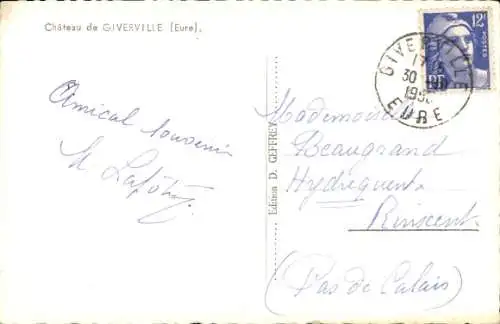 Château de GIVERVILLE (Eure).
Amical souvenir
Edition D. GEFFREY
12F
POSTES
GIVERVILLE
30
EURE
Mademoiselle
Beaugrand
Hydrequent
Rinxent
(Pas de Calais)